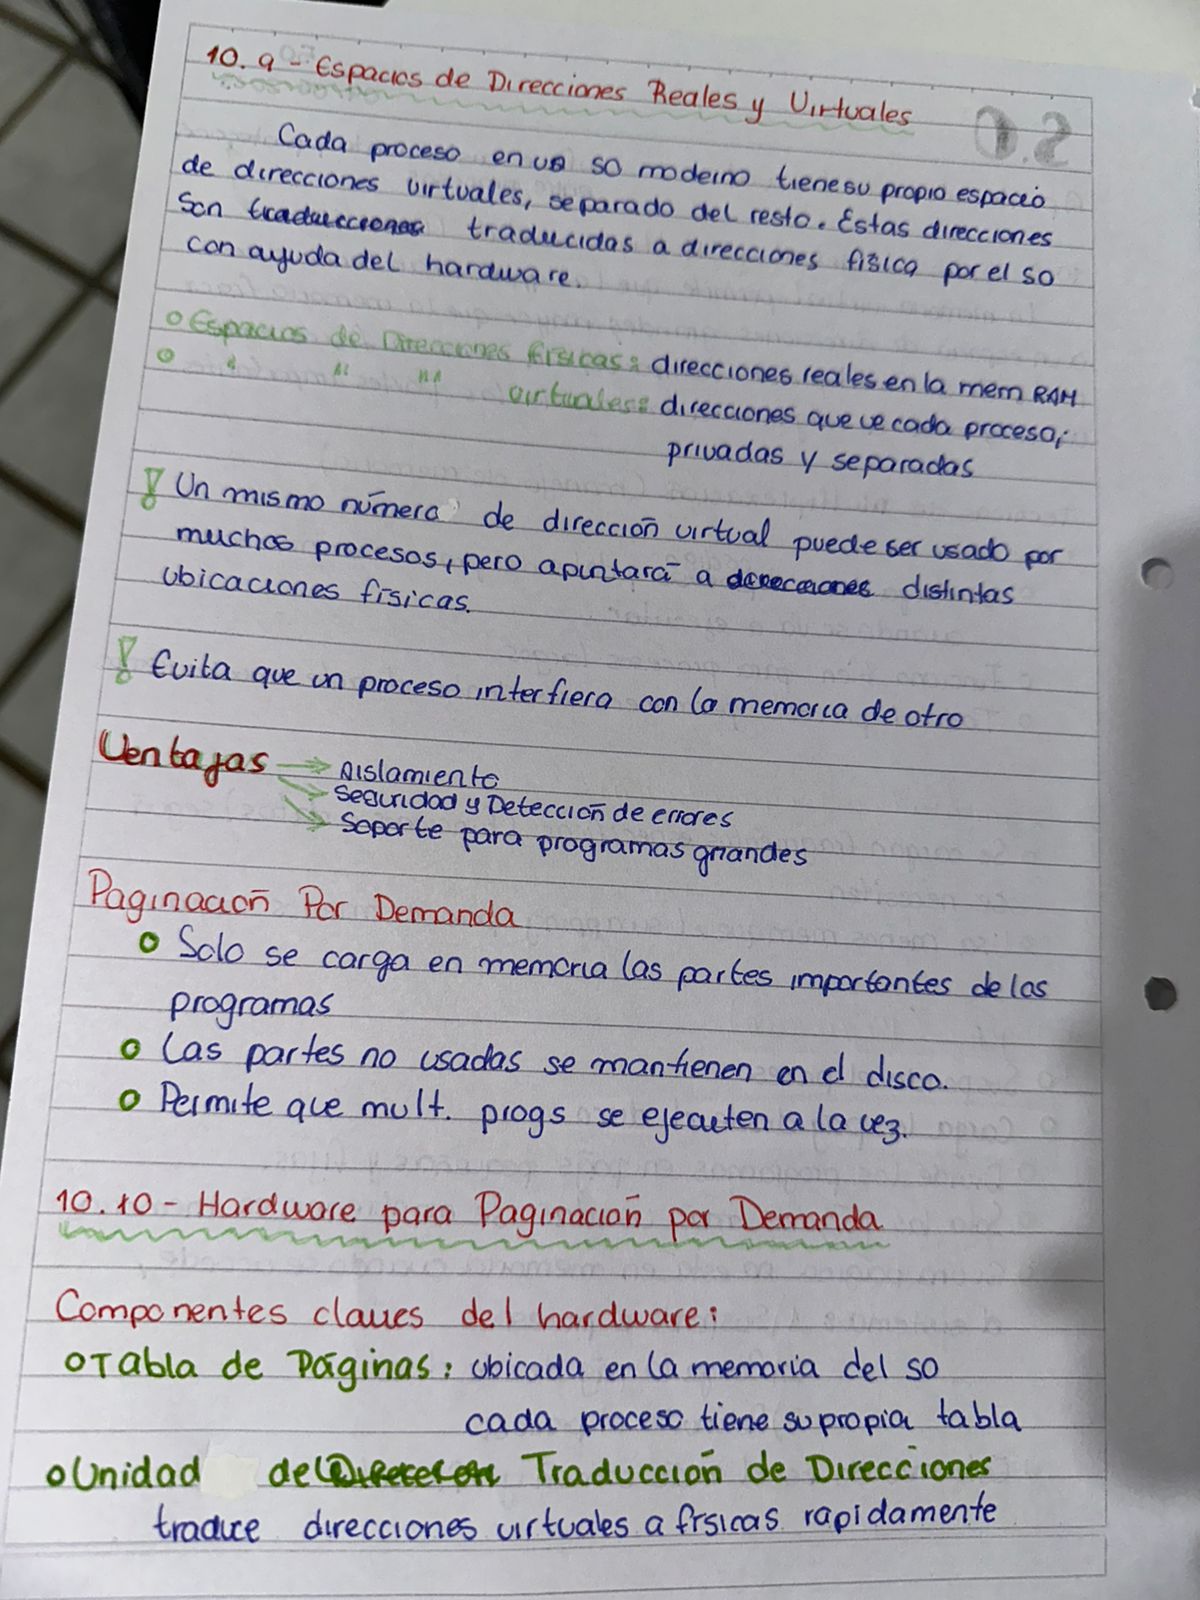 10.9 - Espacios de Direcciones Reales y Virtuales
Cada proceso en un SO moderno tiene su propio espacio
de direcciones virtuales, separado del resto. Estas direcciones
Son traducidas a direcciones física por el SO
con ayuda del hardware.
o Espacios de Direcciones físicas: direcciones reales en la mem RAM
o " " " virtuales: direcciones que ve cada proceso,
privadas y separadas
! Un mismo número de dirección virtual puede ser usado por
muchos procesos, pero apuntará a direcciones distintas
ubicaciones físicas.
! Evita que un proceso interfiera con la memoria de otro
Ventajas → Aislamiento
→ Seguridad y Detección de errores
→ Soporte para programas grandes
Paginación Por Demanda
o Solo se carga en memoria las partes importantes de los
programas
o Las partes no usadas se mantienen en el disco.
o Permite que mult. progs se ejecuten a la vez.
10.10 - Hardware para Paginación por Demanda
Componentes claves del hardware:
o Tabla de Páginas: ubicada en la memoria del SO
cada proceso tiene su propia tabla
o Unidad de Traducción de Direcciones
traduce direcciones virtuales a físicas rapidamente